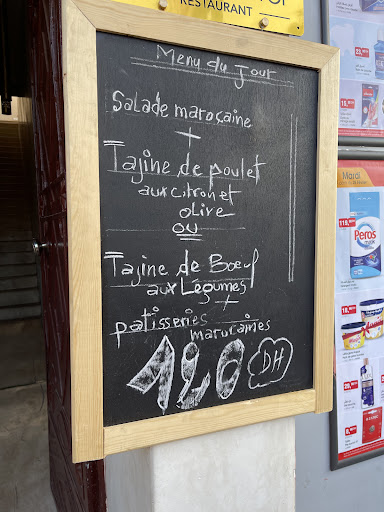 RESTAURANT
Menu du jour
Salade maroçaine
+
Tajine de poulet
aux citron et
olive
ou
Tajine de Boeuf
aux Légumes
+
patisseries
marocaines
120 DH
Mardi
Peros